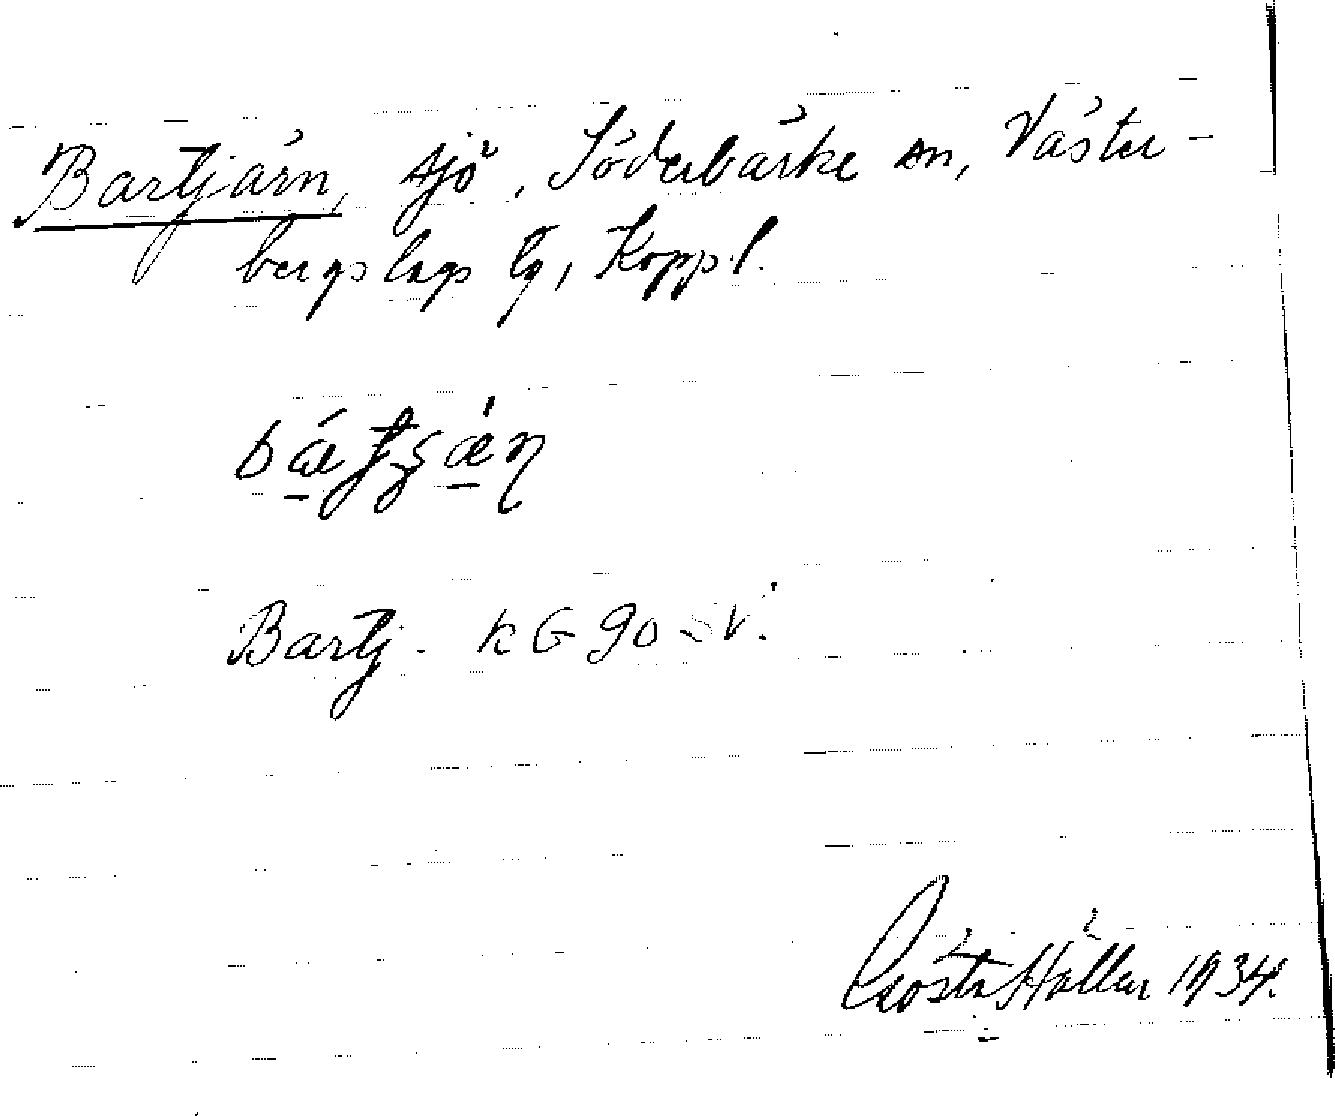 Bartjärn, sjö, Söderbärke sn, Väster-
bergslags tg, Koppl.
Bartj. k G 90 SV.
Gösta Häller 1934.